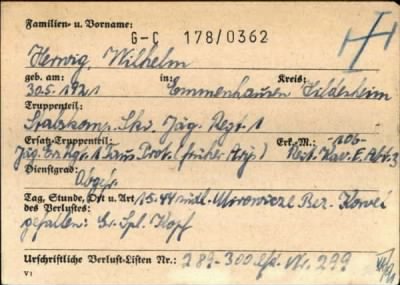 Familien- u. Vorname:
G-C 178/0362
Herwig, Wilhelm
geb. am: in: Kreis:
30.5.1921 Emmenhausen Hildesheim
Truppenteil:
Stabskomp. Ski. Jäg. Regt. 1
Ersatz-Truppenteil: Erk.-M.: -106-
Jäg. Ers. Rgt. 1 (früher Reit. Kav. E. Abt. 3
Dienstgrad:
Obgefr.
Tag, Stunde, Ort u. Art 15. 44 südl. Mirowicze Bez. Kowel
des Verlustes:
gefallen: Gr. Spl. Kopf
Urschriftliche Verlust-Listen Nr.: 289-300 Nr. 299
V 1